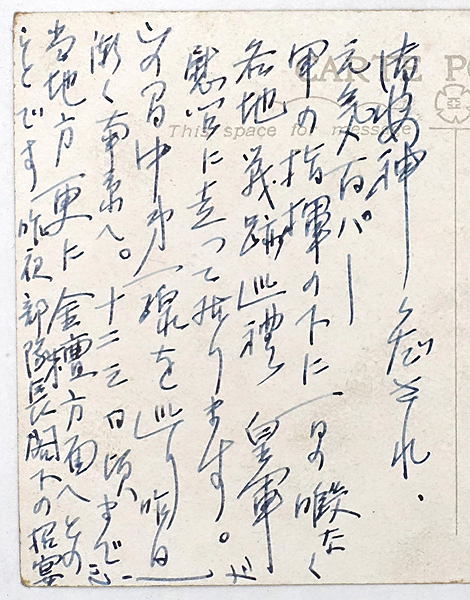 CARTE PO
This space for message
御安神 被下され.
元気百パー
軍の指揮の下に一日の暇なく
各地戦跡巡禮 皇軍
慰問に走って居ります。
この間中オ一線を巡り昨日
漸く南京へ。十二三日頃まで
当地方更に金檀方面へとの
ことです 昨夜部隊長閣下の招宴